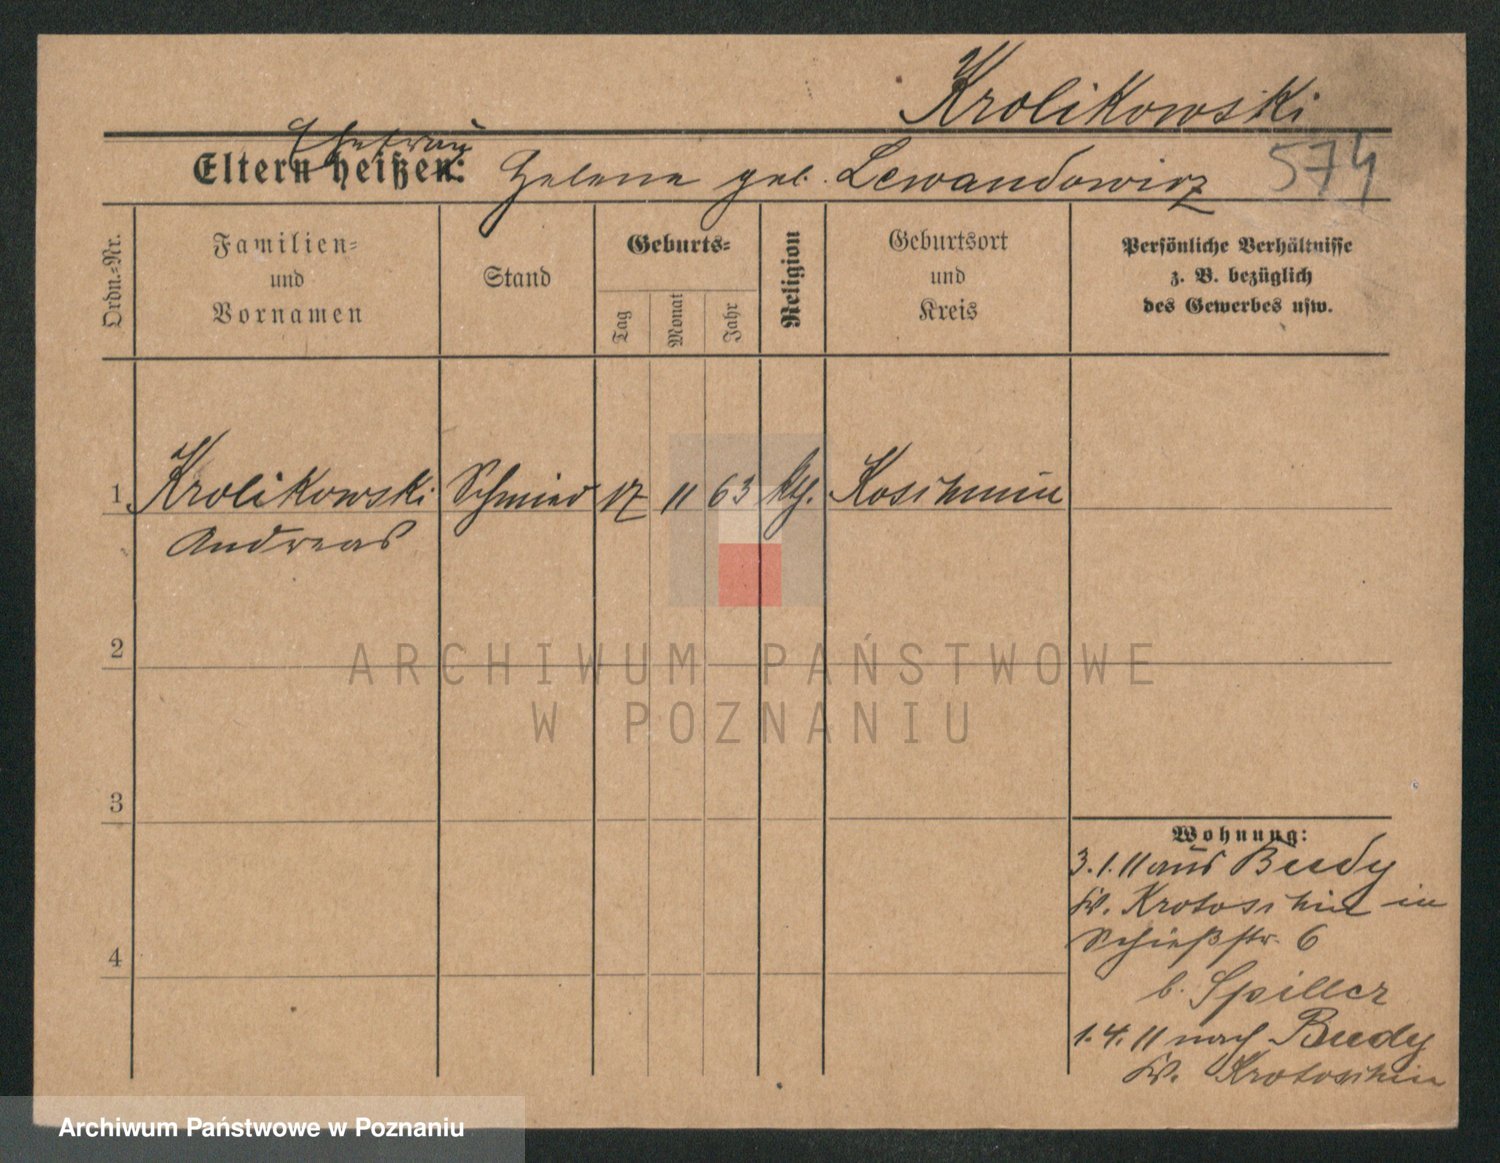 Krolikowski
Ehefrau
Eltern heißen: Helene geb. Lewandowicz
574
Ordn.=Nr.
Familien=
und
Vornamen
Stand
Geburts=
Tag
Monat
Jahr
Religion
Geburtsort
und
Kreis
Persönliche Verhältnisse
z. B. bezüglich
des Gewerbes usw.
1. Krolikowski Schmied 17 11 63 kth. Koschmin
Andreas
2
ARCHIWUM PAŃSTWOWE
W POZNANIU
3
Wohnung:
3.1.11 aus Budy
Kr. Krotoschin in
Schießstr. 6
4
b. Spiller
1.4.11 nach Budy
Kr. Krotoschin
Archiwum Państwowe w Poznaniu